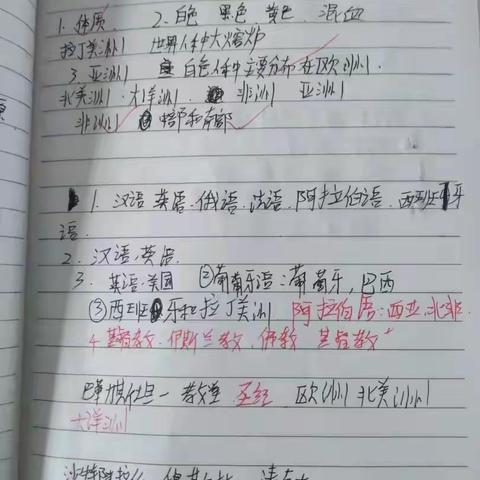 1. 体质 2. 白色 黑色 黄色 混血
拉丁美洲 世界人种大熔炉
3. 亚洲 白色人种主要分布在欧洲.
北美洲. 大洋洲. 非洲 亚洲
非洲 中部和南部
1. 汉语 英语. 俄语. 法语. 阿拉伯语. 西班牙
语.
2. 汉语. 英语.
3. 英语:美国 ②葡萄牙语:葡萄牙,巴西
③西班牙和拉丁美洲 阿拉伯语:西亚.北非.
4 基督教. 伊斯兰教. 佛教 基督教
巴基斯坦一教堂 圣经 欧洲 北美洲
大洋洲